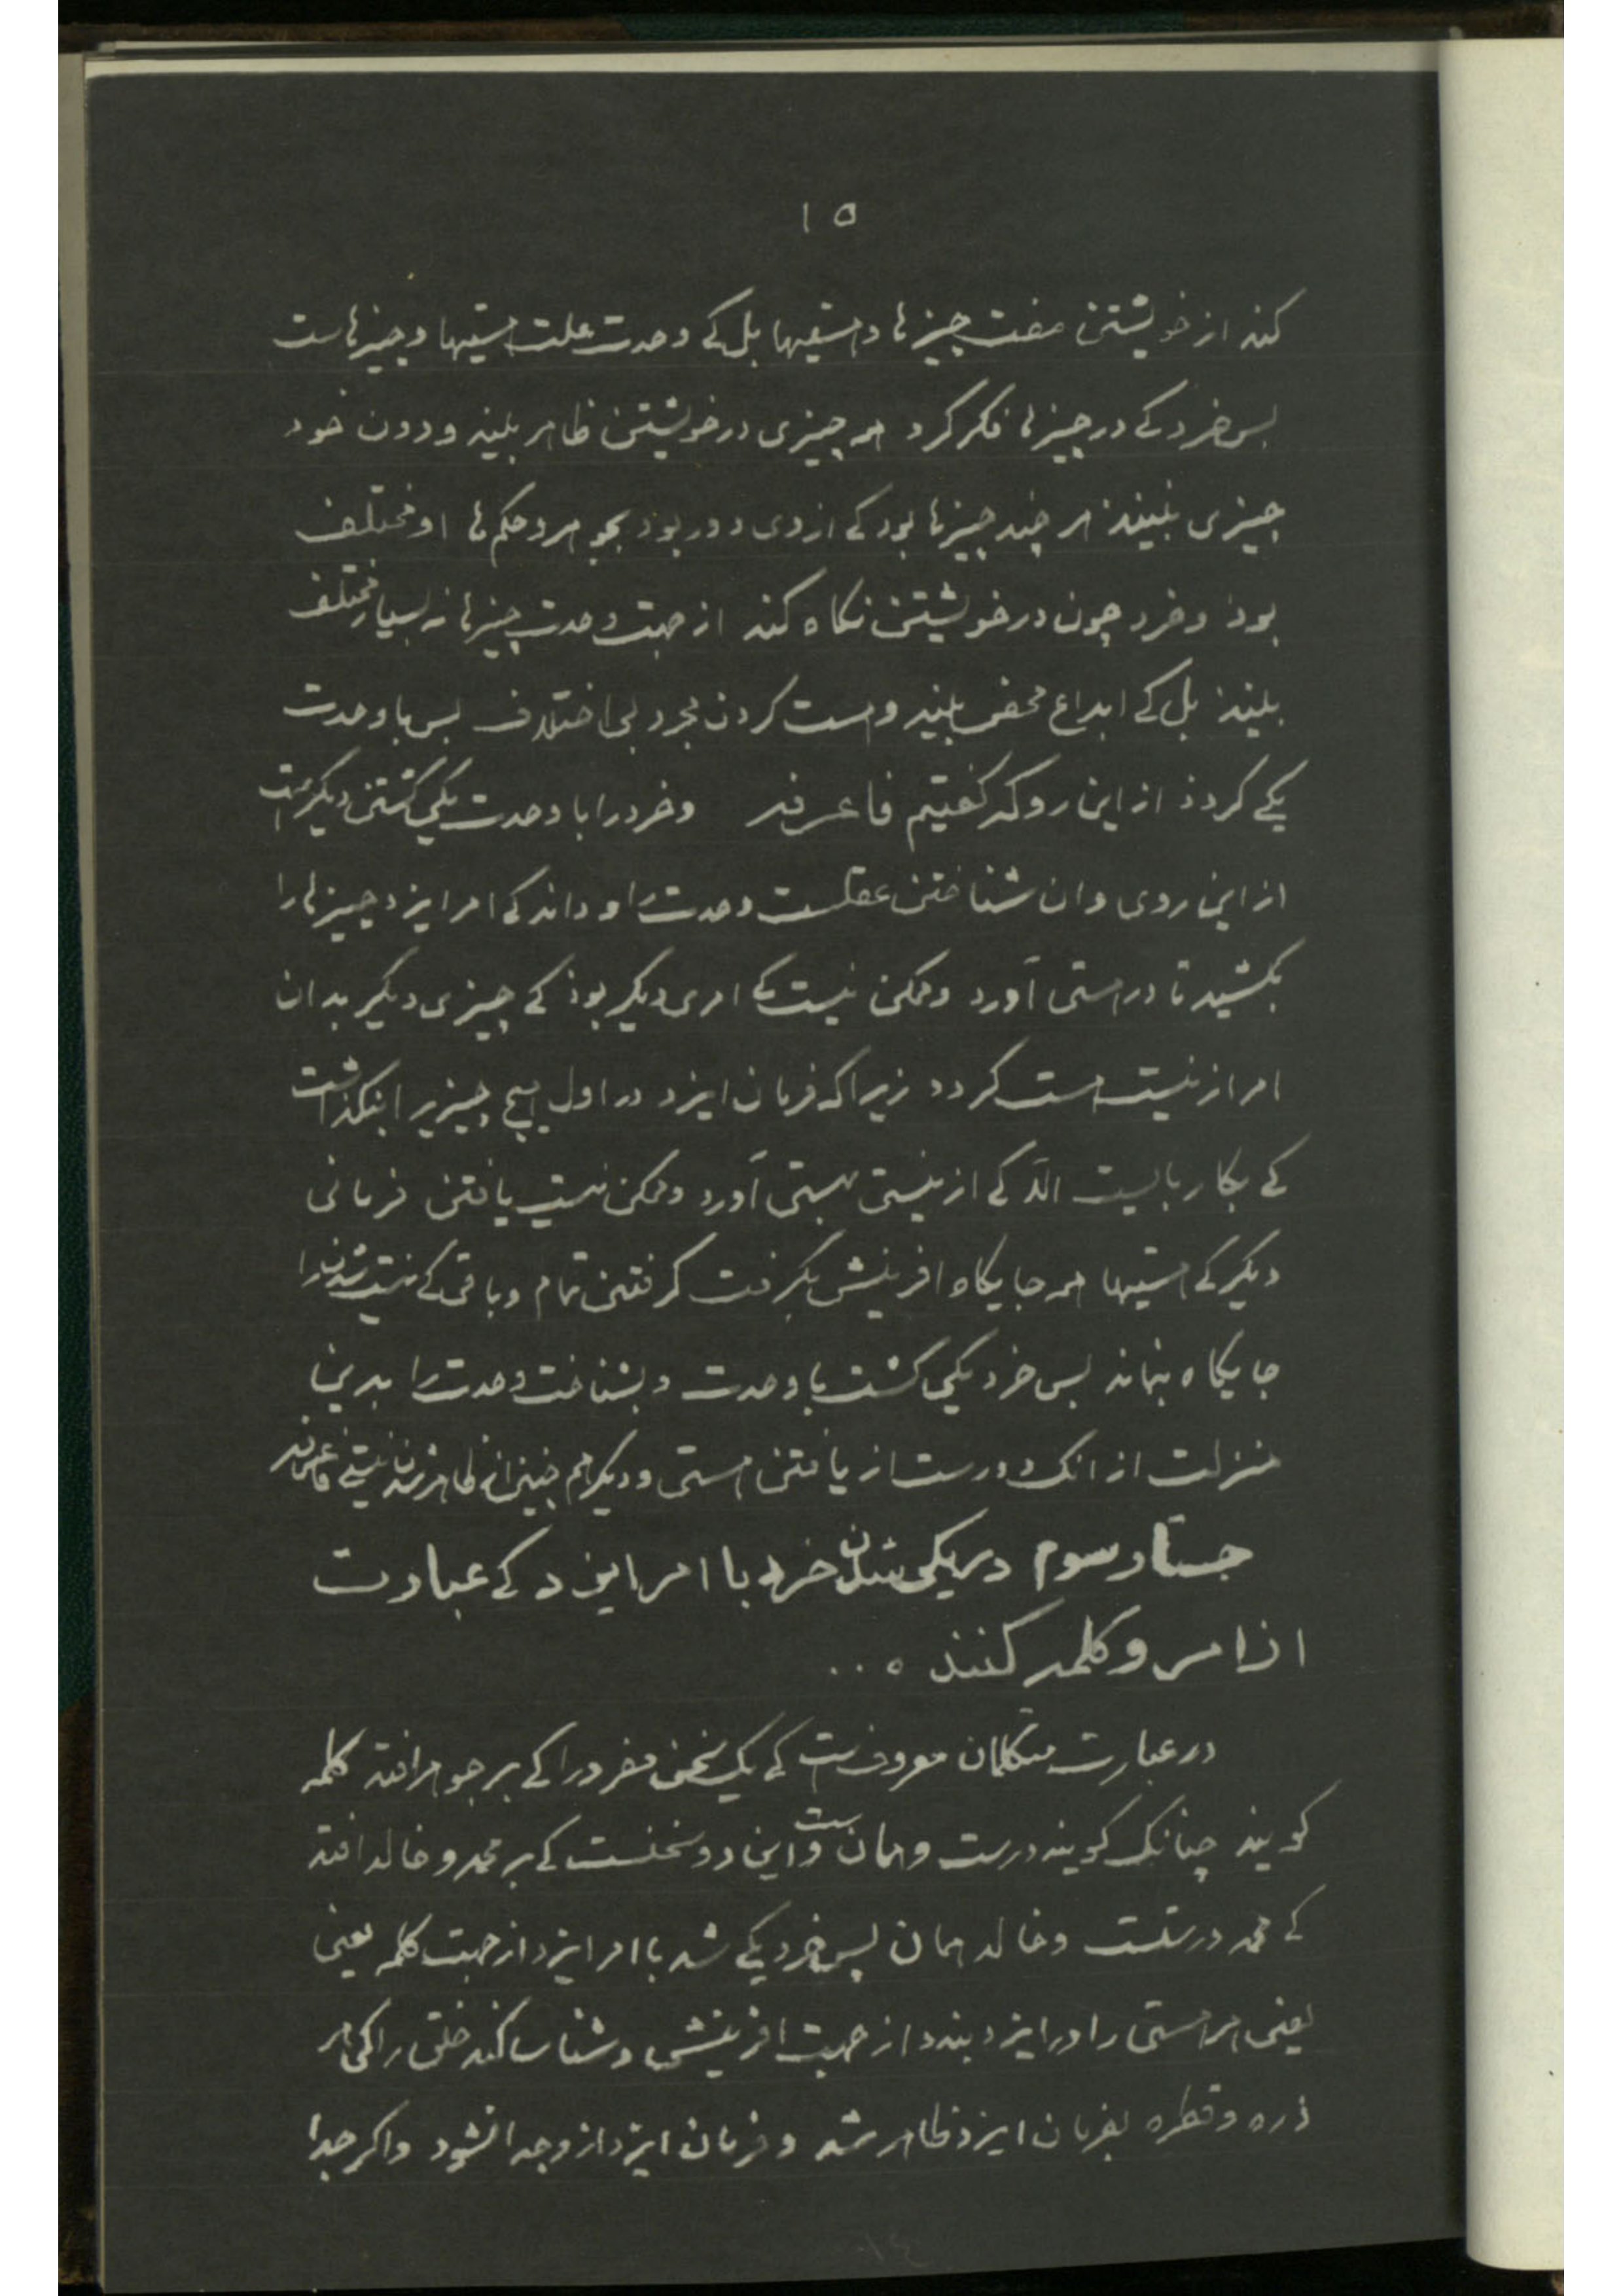 ۱۵
کند از خویشتن صفت چیزها و هستیها بل کے وحدت علت هستیها و چیزهاست
بس خرد کے در چیزها فکر کرد همه چیزی در خویشتن ظاهر بیند و دون خود
چیزی نبیند هر چند چیزها بود کے از وی دور بود بجوهر و حکم ها او مختلف
بوذ و خرد چون در خویشتن نکاه کند از جهت وحدت چیزها نه بسیار مختلف
بیند بل کے ابداع محض بیند و هست کردن مجرد بی اختلاف بس با وحدت
یکے کردد از این رو که کفتیم فاعرفه وخرد را با وحدت یکی کشتن دیکر هست
از این روی و ان شناختن عقلست وحدت را و داند کے امر ایزد چیزها را
بکشید تا در هستی آورد وممکن نیست کے امری دیکر بوذ کے چیزی دیکر بدان
امر از نیست هست کردد زیرا که فرمان ایزد در اول هیچ چیزیرا بنکذاشت
کے بکار بایست الّا کے از نیستی بهستی آورد وممکن نیست یافتن فرمانی
دیکر کے هستیها همه جایکاه افرینش بکرفت کرفتنی تمام و باقی کے هست شدن را
جایکاه بنماند بس خرد یکی کشت با وحدت و بشناخت وحدت را بدین
منزلت از انک دورست از یافتن هستی و دیکر هم چنین از ظاهر شدن نیستی فاعرفه
جستار سوم در یکی شدن خرد با امر ایزد کے عبارت
از امر و کلمه کنند ه ..
در عبارت متکلمان معروفست کے یک سخن مفرد را کے بر جوهر افتد کلمه
کویند چنانک کویند درست و همان ست و این دو سخنست کے بر محمد و خالد افتد
کے محمد درستست و خالد همان بس خرد یکے شد با امر ایزد از جهت کلمه یعنی
یعنی هر هستی را در ایزد بندد از جهت افرینش و شناسا کند خلق را کی هر
ذره و قطره بفرمان ایزد ظاهر شد و فرمان ایزد ازو جدا نشود واکر جدا
۱۴